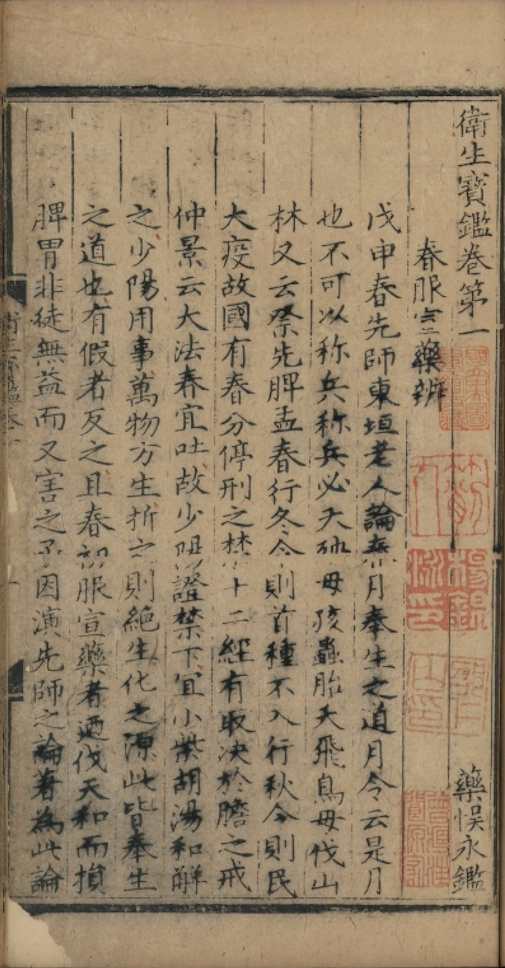 衛生寶鑑卷第一
藥悞永鑑
春服宣藥辨
戊申春先師東垣老人論春月奉生之道月令云是月
也不可以称兵称兵必夭殃毋孩蟲胎夭飛鳥毋伐山
林又云祭先脾孟春行冬令則首種不入行秋令則民
大疫故國有春分停刑之禁十二經有取决於膽之戒
仲景云大法春宜吐故少陽證禁下宜小柴胡湯和解
之少陽用事萬物方生折之則絶生化之源此皆奉生
之道也有假者反之且春初服宣藥者廼伐天和而損
脾胃非徒無益而又害之予因演先師之論著為此論